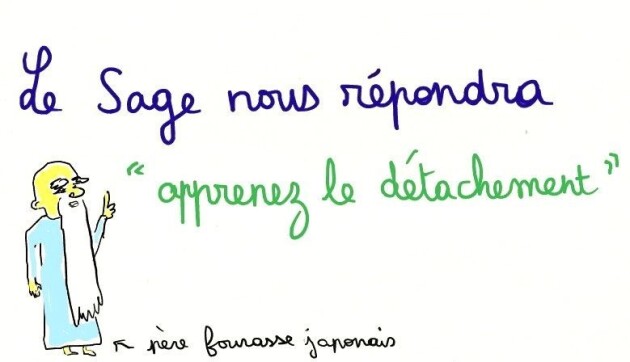 Le Sage nous répondra
"apprenez le détachement"
père fourasse japonais